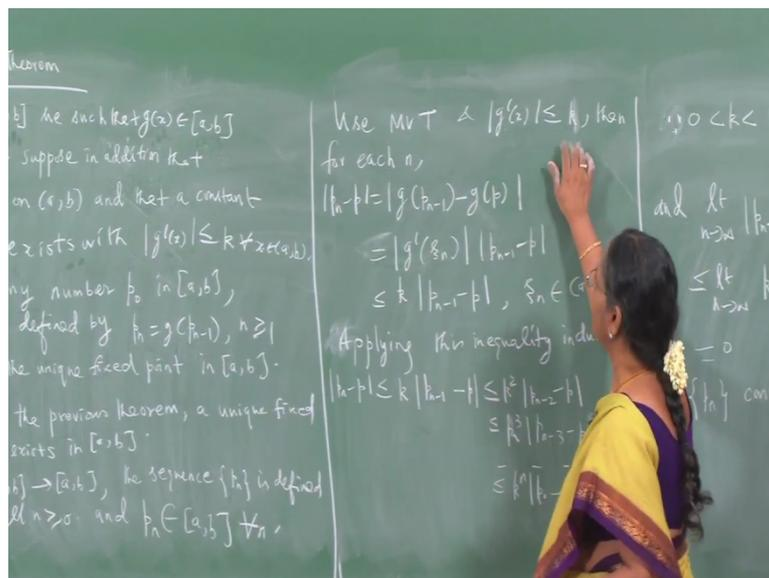 Theorem
b] be such that g(x) ∈ [a,b]
suppose in addition that
on (a,b) and that a constant
exists with |g'(x)| ≤ k ∀ x ∈ (a,b).
ny number p₀ in [a,b],
defined by pₙ = g(pₙ₋₁), n ≥ 1
he unique fixed point in [a,b].
the previous theorem, a unique fixed
exists in [a,b].
b] → [a,b], the sequence {pₙ} is defined
n ≥ 0 and pₙ ∈ [a,b] ∀n.
Use MVT & |g'(x)| ≤ k, then
for each n,
|pₙ-p| = |g(pₙ₋₁)-g(p)|
= |g'(ξₙ)| |pₙ₋₁-p|
≤ k |pₙ₋₁-p|, ξₙ ∈ (a
Applying this inequality indu
|pₙ-p| ≤ k |pₙ₋₁-p| ≤ k² |pₙ₋₂-p|
≤ k³ |pₙ₋₃-p
≤ kⁿ |p
0 < k <
and lt n→∞ |pₙ
≤ lt n→∞ k
= 0
{pₙ} con